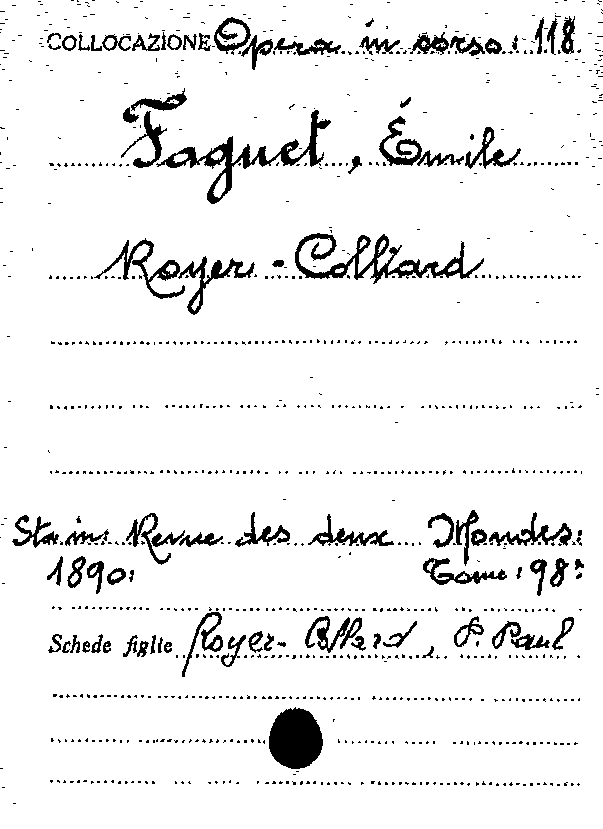 COLLOCAZIONE Opera in corso: 118
Faguet, Émile
Royer-Colliard
Sta in: Revue des deux Mondes:
1890: Tome: 98:
Schede figlie Royer-Collard, P. Paul